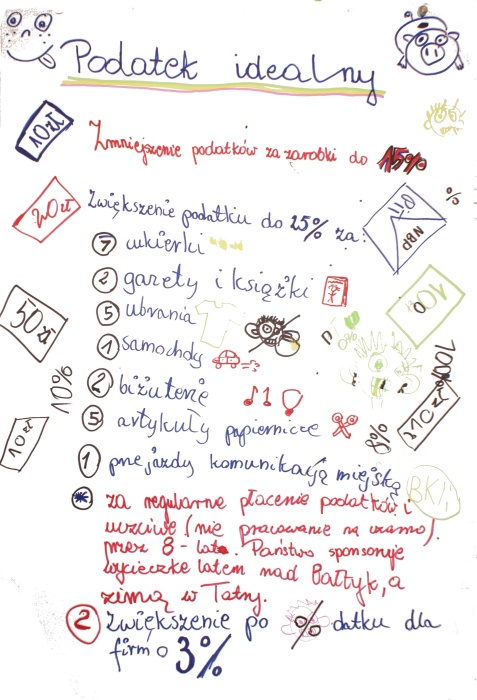 Podatek idealny
10 zł
Zmniejszenie podatków za zarobki do 15%
%
20 zł
Zwiększenie podatku do 25% za:
PIT
NBP
7 cukierki
2 gazety i książki
50 zł
5 ubrania
0%
1 samochody
100%
10%
2 biżuterię
210 zł
10 zł
5 artykuły papiernicze
8%
1 przejazdy komunikacją miejską
* za regularne płacenie podatków i
uczciwe (nie pracowanie na czarno)
przez 8-lat. Państwo sponsoruje
wycieczkę latem nad Bałtyk, a
zimą w Tatry.
2 Zwiększenie po % datku dla
firm o 3%